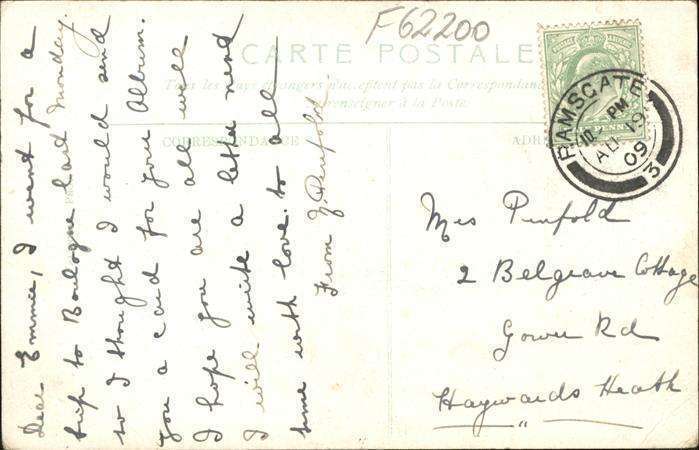 F62200
CARTE POSTALE
Tous les pays étrangers n'acceptent pas la Correspondance
renseigner à la Poste
CORRESPONDANCE
ADR
RAMSGATE
10 PM
AU 19
09
3
Dear Emmie, I went for a
trip to Boulogne last Monday.
so I thought I would send
you a card for your Album.
I hope you are all well
I will write a letter next
time with love to all
From J. Penfold
Mrs Penfold
2 Belgrave Cottage
Gower Rd
Haywards Heath